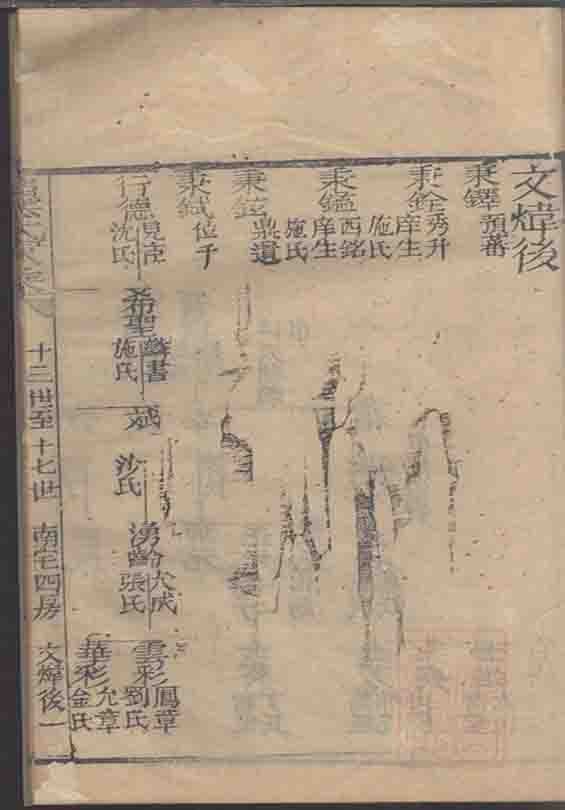 文煒後
秉鐸 預蕃
秉銓 秀升 庠生 施氏
秉鎰 西銘 庠生 施氏
秉鉉 鼎遺
秉鉞 位千
行德 見在 沈氏
希聖 麟書 施氏
斌 沙氏
湧 大成 張氏
雲彩 鳳章 劉氏
華彩 允章 金氏
十三世至十七世 南宅四房 文煒後一